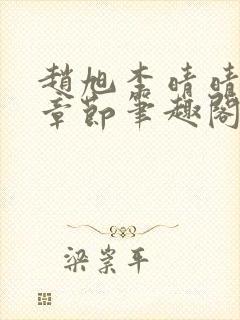 趙旭李晴晴
章節筆趣閣
梁崇平